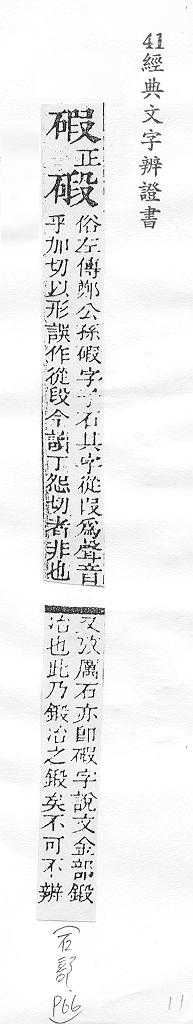 41經典文字辨證書
碬正碫
俗左傳鄭公孫碬字子石其字從叚爲聲音
乎加切以形誤作從段今讀丁怨切者非也
厲石亦即碬字說文金部鍛
冶也此乃鍛冶之鍛矣不可不辨
(石部 P66)
11